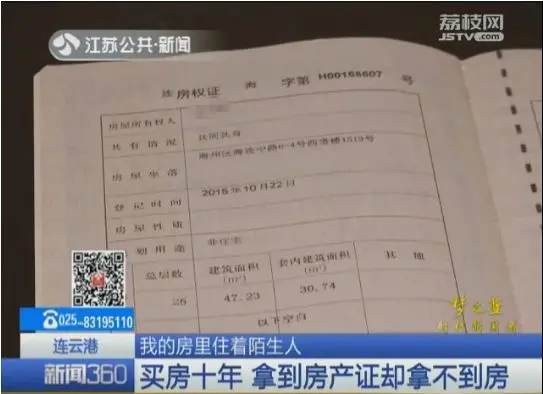 江苏公共·新闻
荔枝网
JSTV.com
连 房权证 海 字第 H00168607 号
房屋所有权人
共有情况 共同共有
房屋坐落 海州区海连中路6-4号西塔楼1519号
登记时间 2015年10月22日
房屋性质
规划用途 非住宅
总层数 建筑面积 套内建筑面积 其他
(m²) (m²)
26 47.23 30.74
以下空白
025-83195110
梦之蓝
连云港 我的房里住着陌生人
新闻360 买房十年 拿到房产证却拿不到房